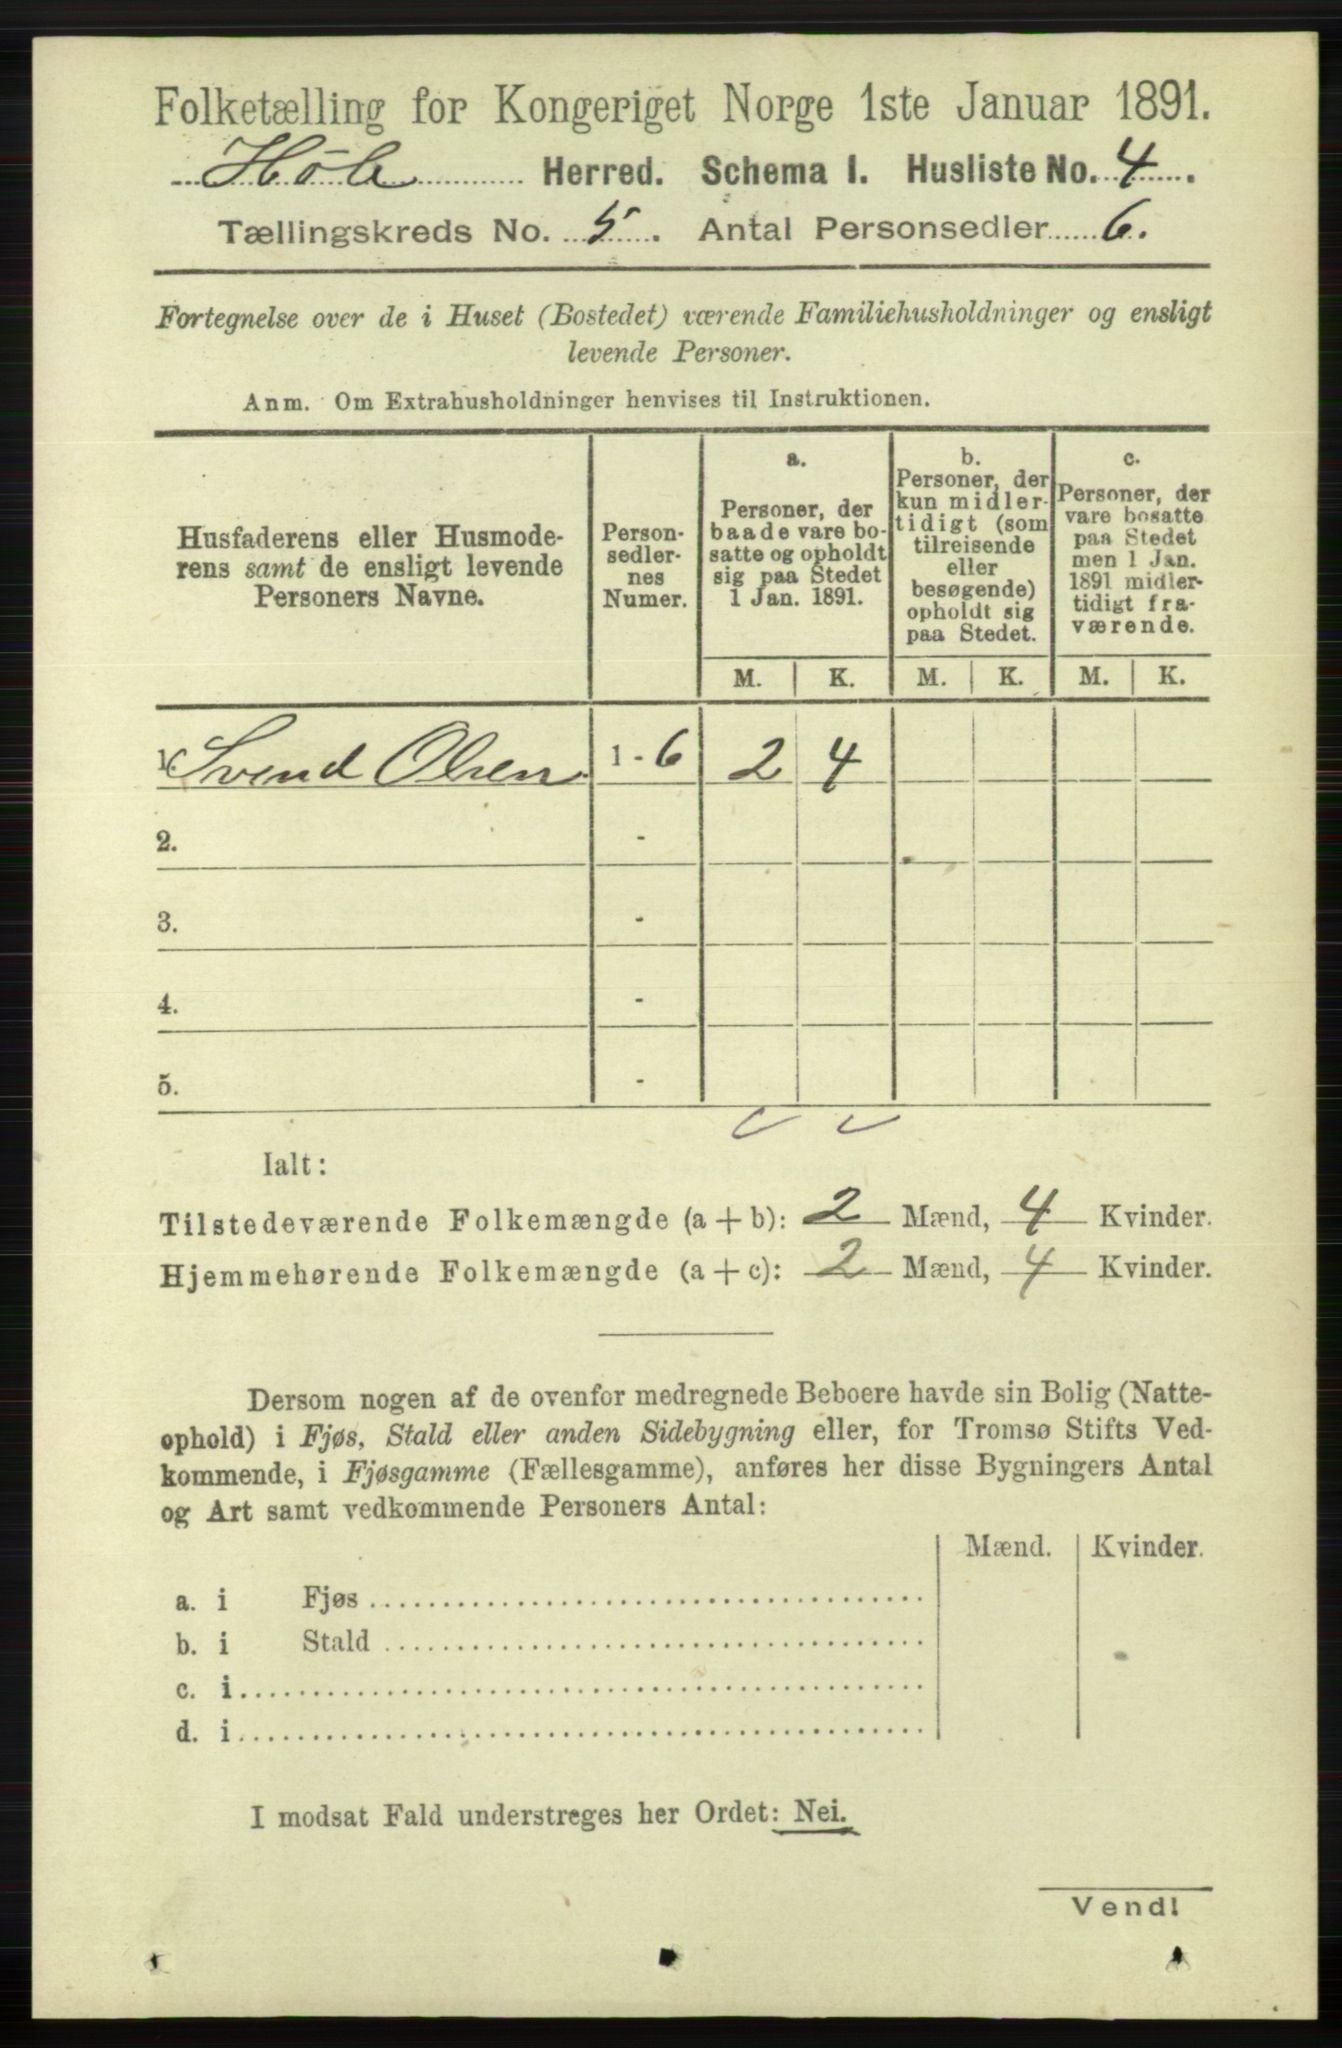 Folketælling for Kongeriget Norge 1ste Januar 1891.
Høle Herred. Schema I. Husliste No. 4.
Tællingskreds No. 5. Antal Personsedler 6.
Fortegnelse over de i Huset (Bostedet) værende Familiehusholdninger og ensligt
levende Personer.
Anm. Om Extrahusholdninger henvises til Instruktionen.
Husfaderens eller Husmode-
rens samt de ensligt levende
Personers Navne.
Person-
sedler-
nes
Numer.
a.
Personer, der
baade vare bo-
satte og opholdt
sig paa Stedet
1 Jan. 1891.
b.
Personer, der
kun midler-
tidigt (som
tilreisende
eller
besøgende)
opholdt sig
paa Stedet.
c.
Personer, der
vare bosatte
paa Stedet
men 1 Jan.
1891 midler-
tidigt fra-
værende.
M. K. M. K. M. K.
1. Svend Olsen 1 - 6 2 4
2. -
3. -
4. -
5. -
Ialt:
Tilstedeværende Folkemængde (a + b): 2 Mænd, 4 Kvinder.
Hjemmehørende Folkemængde (a + c): 2 Mænd, 4 Kvinder.
Dersom nogen af de ovenfor medregnede Beboere havde sin Bolig (Natte-
ophold) i Fjøs, Stald eller anden Sidebygning eller, for Tromsø Stifts Ved-
kommende, i Fjøsgamme (Fællesgamme), anføres her disse Bygningers Antal
og Art samt vedkommende Personers Antal:
Mænd. Kvinder.
a. i Fjøs
b. i Stald
c. i
d. i
I modsat Fald understreges her Ordet: Nei.
Vend!